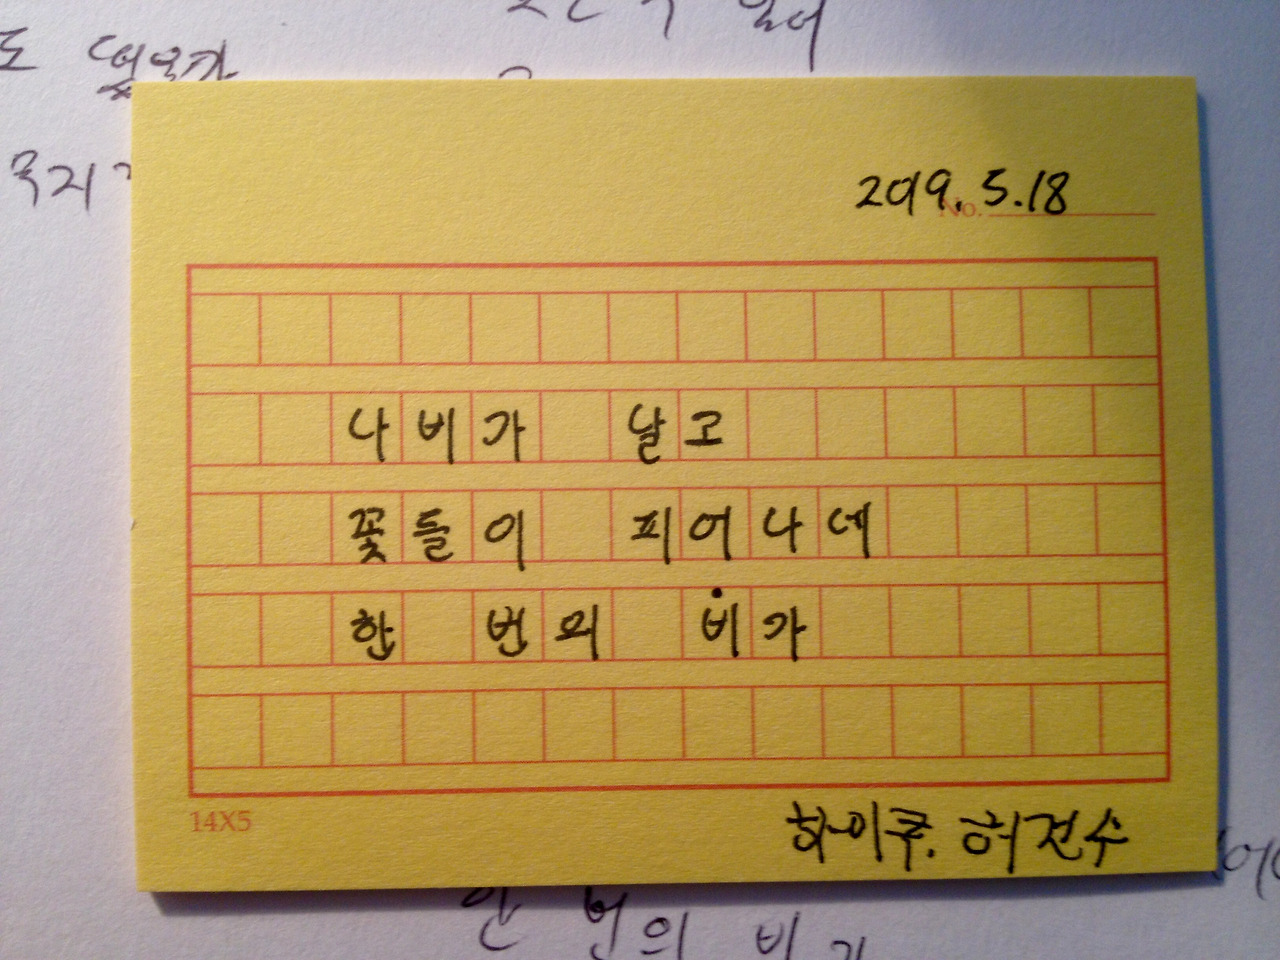 2019. 5.18
No.
나비가 날고
꽃들이 피어나네
한 번의 비가
14X5
하이쿠. 허건수
한 번의 비가